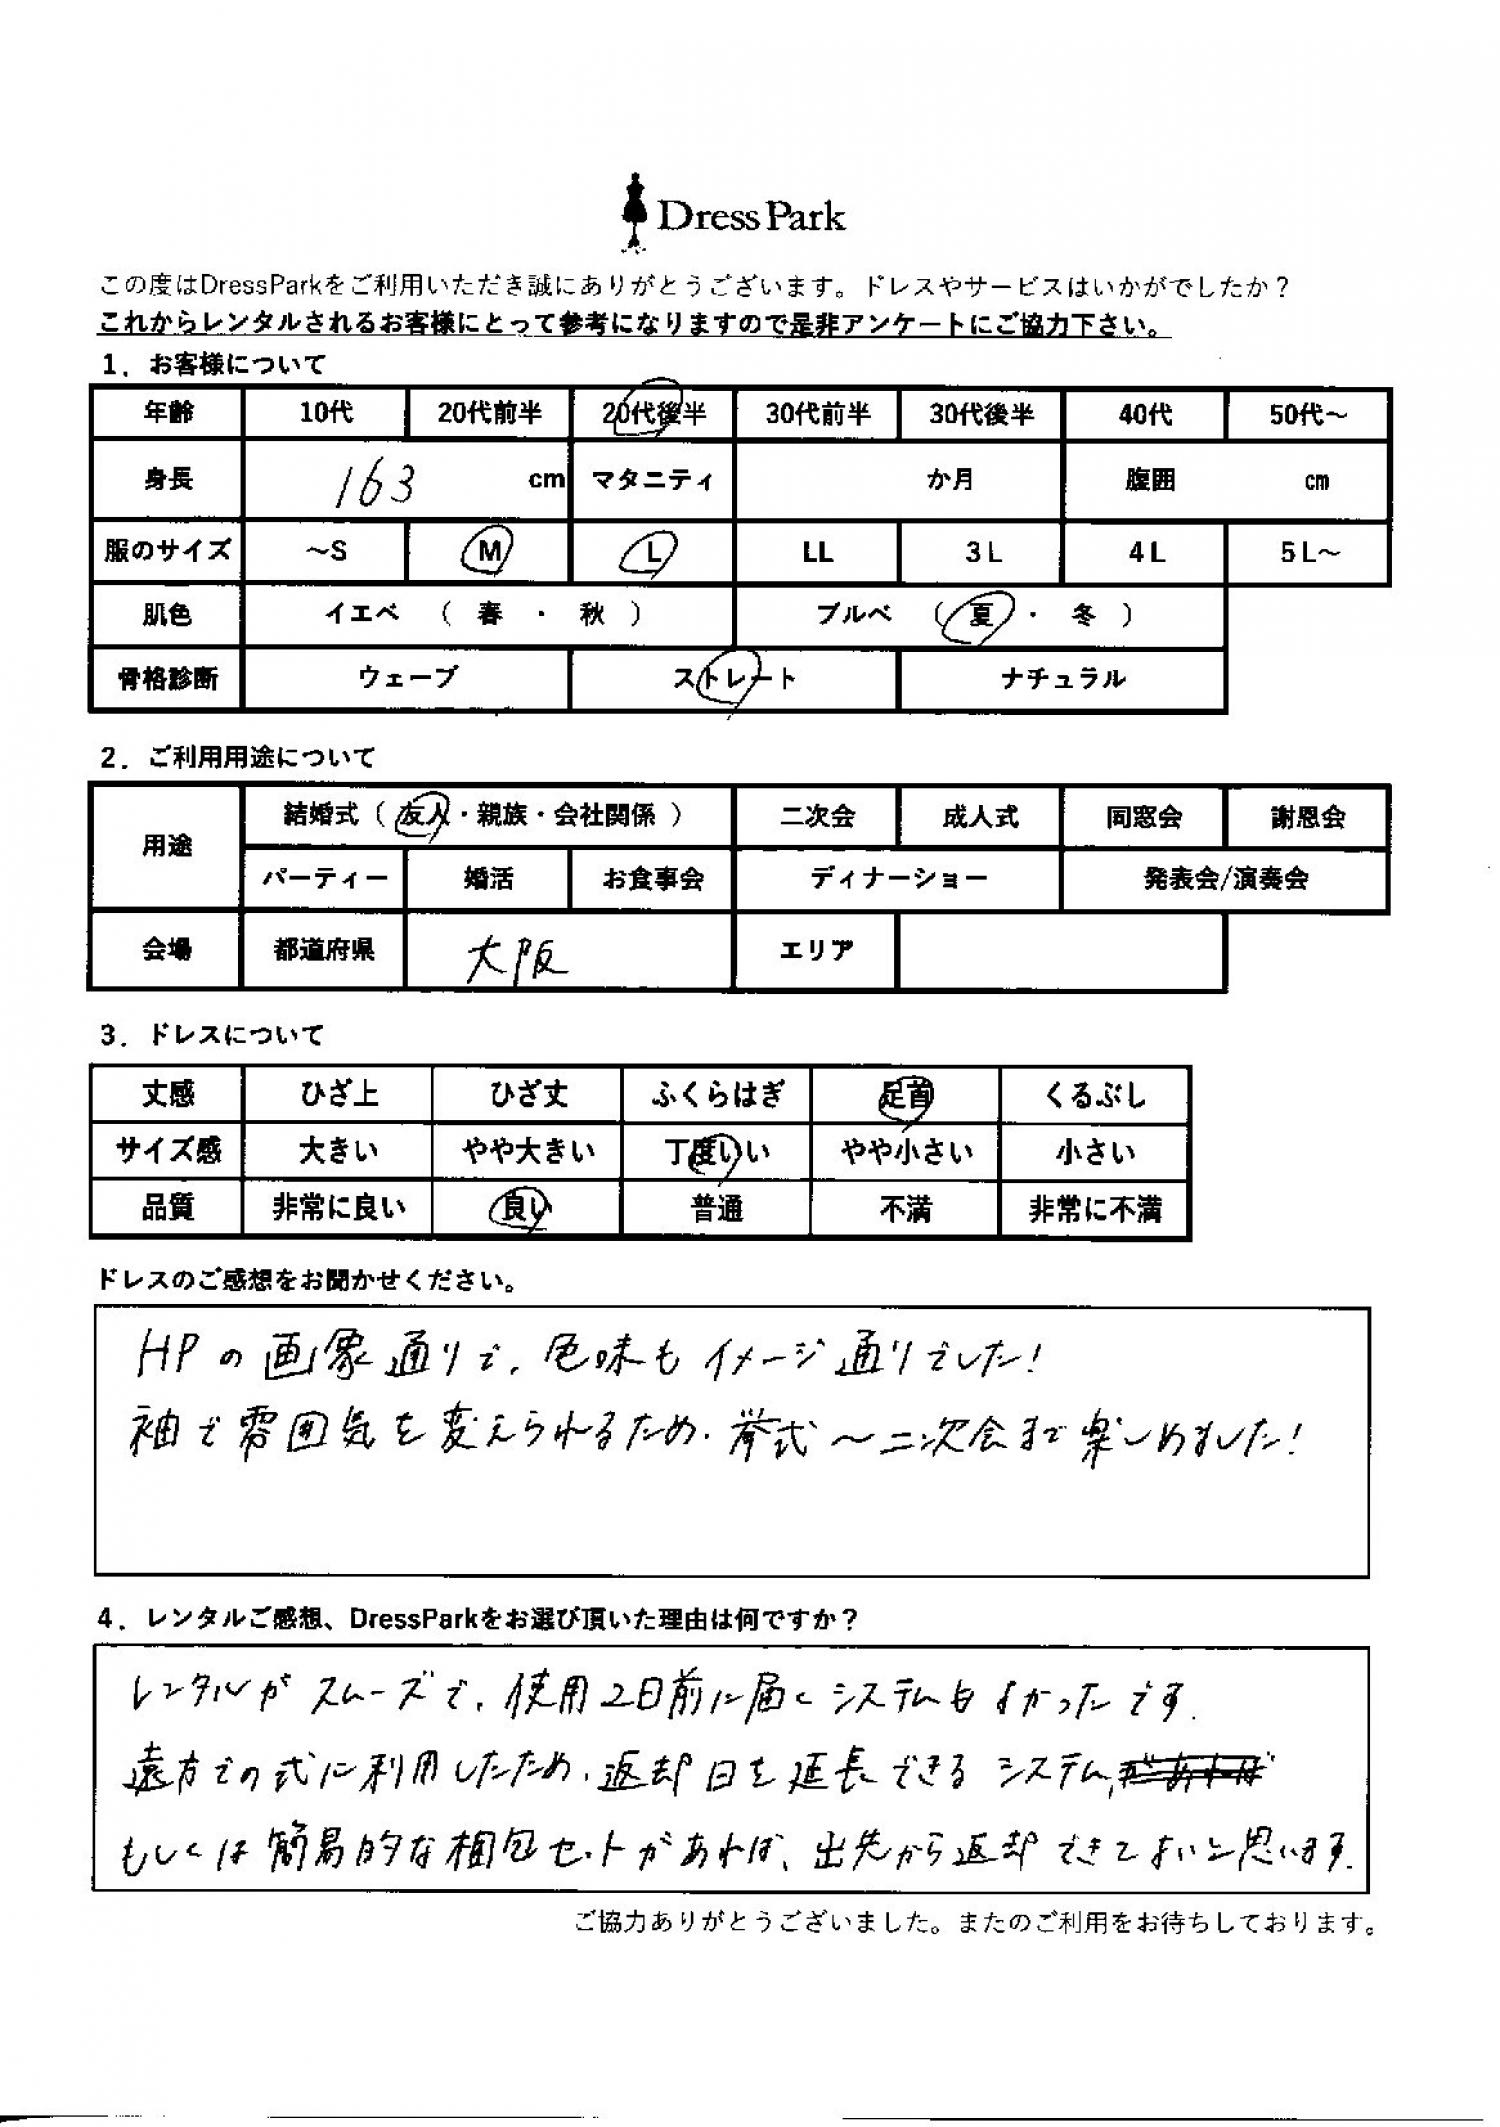 Dress Park
この度はDressParkをご利用いただき誠にありがとうございます。ドレスやサービスはいかがでしたか？
これからレンタルされるお客様にとって参考になりますので是非アンケートにご協力下さい。
1．お客様について
年齢 10代 20代前半 20代後半 30代前半 30代後半 40代 50代～
身長 163 cm マタニティ か月 腹囲 cm
服のサイズ ～S M L LL 3L 4L 5L～
肌色 イエベ （ 春 ・ 秋 ） ブルベ （ 夏 ・ 冬 ）
骨格診断 ウェーブ ストレート ナチュラル
2．ご利用用途について
用途 結婚式（ 友人・親族・会社関係 ） 二次会 成人式 同窓会 謝恩会
パーティー 婚活 お食事会 ディナーショー 発表会/演奏会
会場 都道府県 大阪 エリア
3．ドレスについて
丈感 ひざ上 ひざ丈 ふくらはぎ 足首 くるぶし
サイズ感 大きい やや大きい 丁度いい やや小さい 小さい
品質 非常に良い 良い 普通 不満 非常に不満
ドレスのご感想をお聞かせください。
HPの画象通りで、色味もイメージ通りでした！
袖で雰囲気を変えられるため、挙式～二次会まで楽しめました！
4．レンタルご感想、DressParkをお選び頂いた理由は何ですか？
レンタルがスムーズで、使用2日前に届くシステムもよかったです。
遠方での式に利用したため、返却日を延長できるシステム、
もしくは簡易的な梱包セットがあれば、出先から返却できてよいと思います。
ご協力ありがとうございました。またのご利用をお待ちしております。